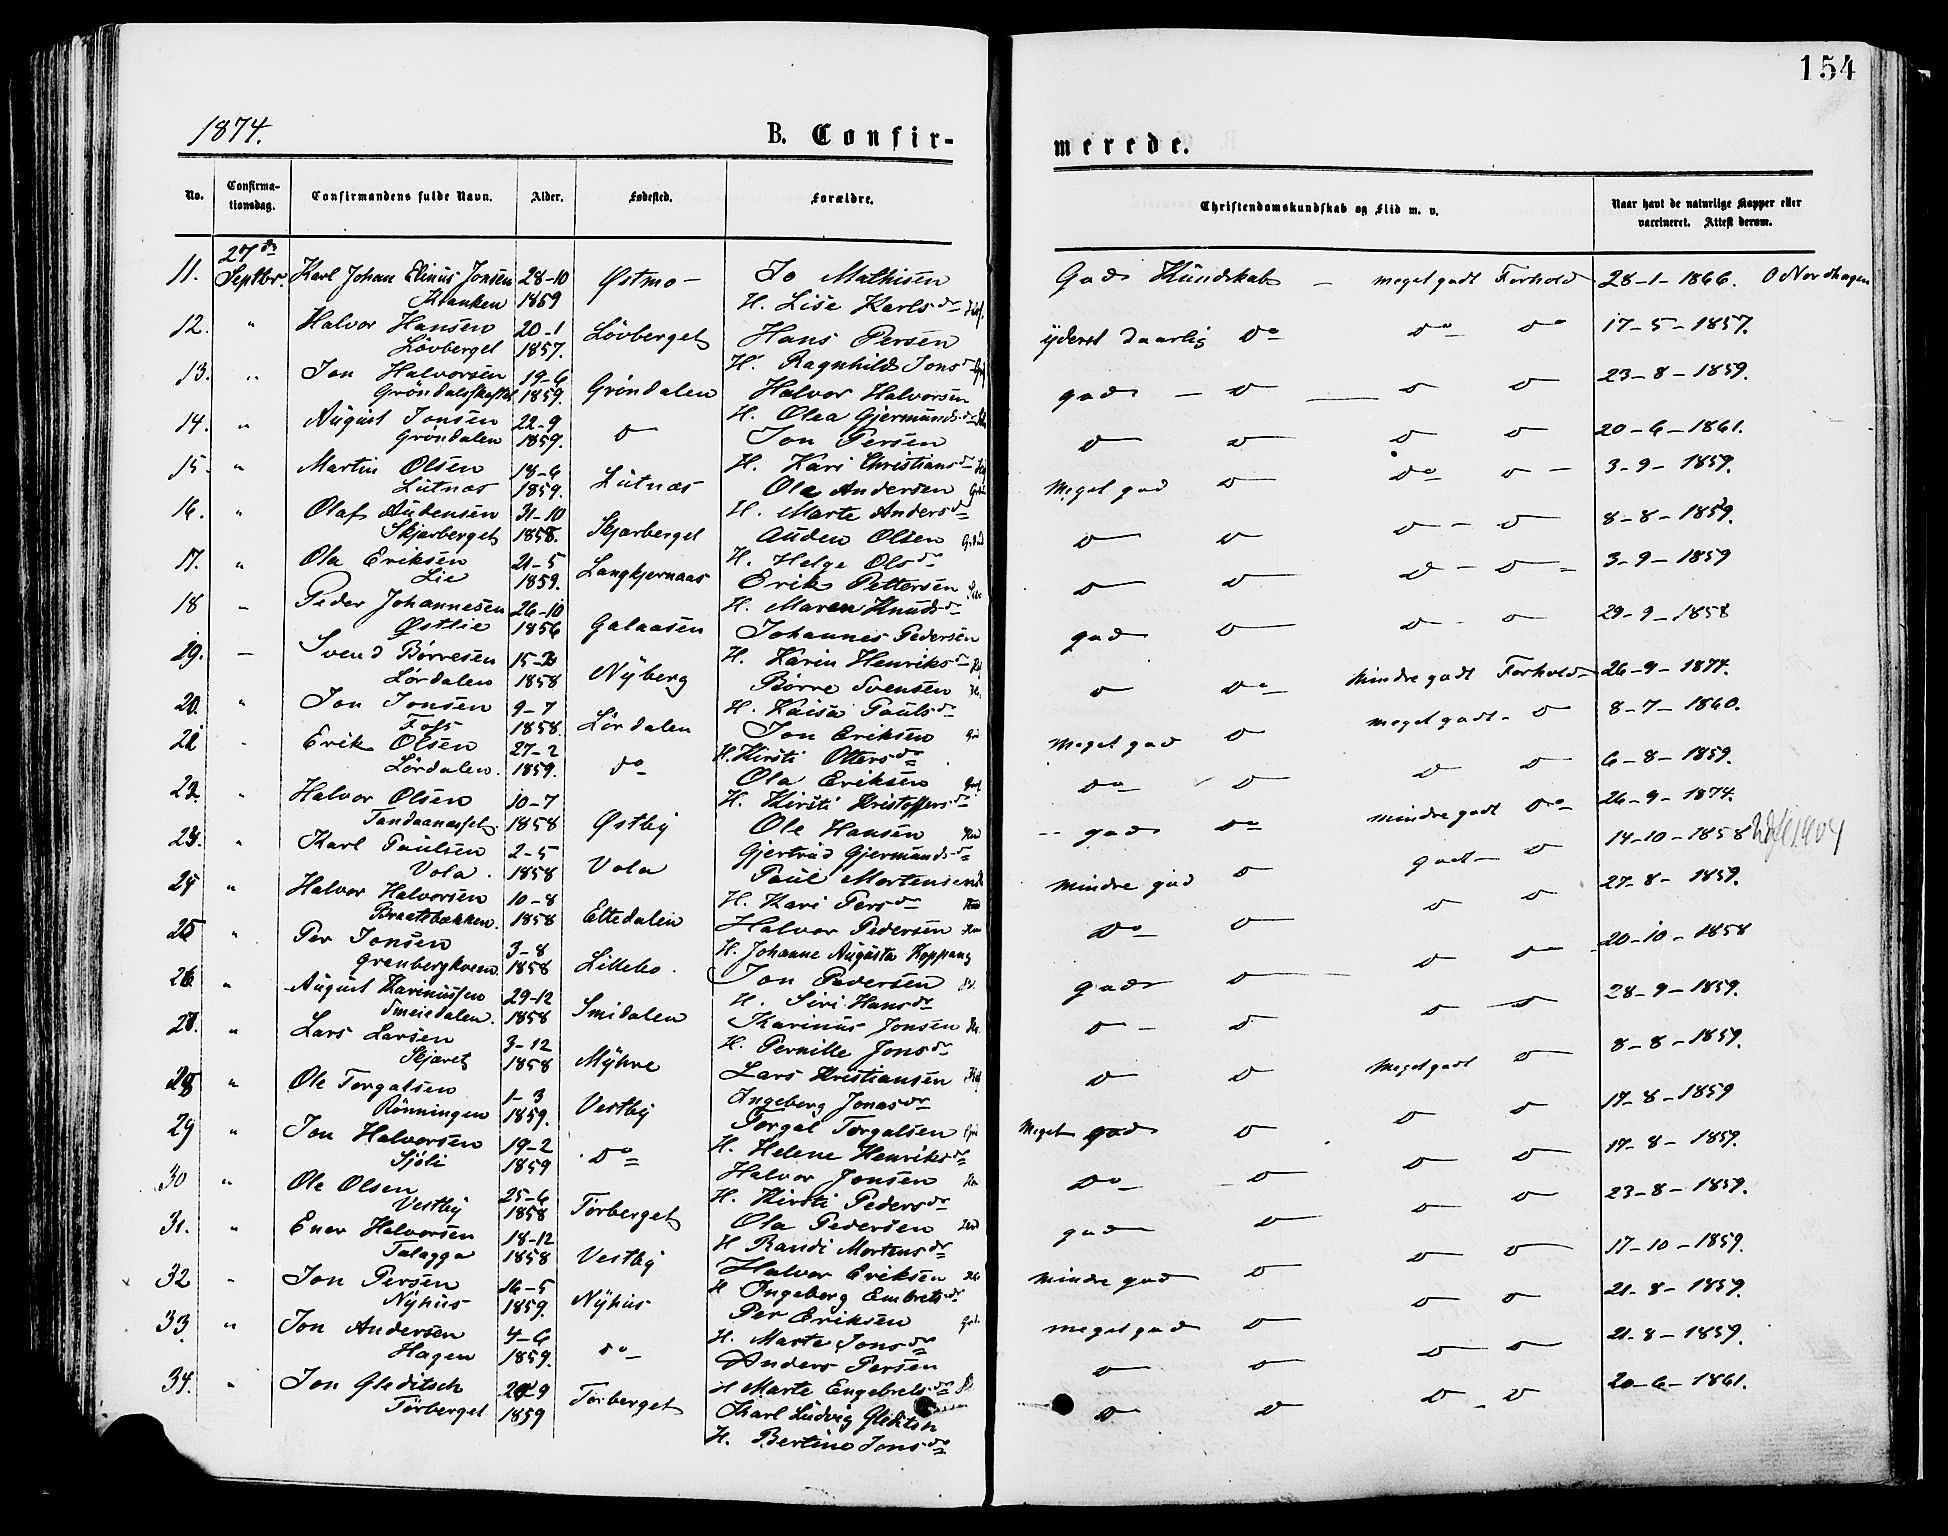 154
1874.
B. Confir-
merede.
No. Confirma-tionsdag. Confirmandens fulde Navn. Alder. Fødested. Forældre. Christendomskundskab og Flid m. v. Naar havt de naturlige Kopper eller vaccineret. Attest derom.
27de
11. Septbr. Karl Johan Elinus Jonsen 28-10 Østmo - Jo Mathisen Gods Kundskab - meget godt Forhold 28-1-1866. O Nordhagen
1859 H. Lise Karlsdr
12. " Halvor Hansen 20-1 Løvberget Hans Persen yderst daarlig do do do 17-5-1857.
Løvberget 1857. H. Ragnhild Jonsdr
13. " Jon Halvorsen 19-6 Gröndalen Halvor Halvorsen god - do do do 23-8-1859.
1859. H. Olea Gjermundsdr
14. " August Jonsen 22-9 do Jon Persen do do do do 20-6-1861.
Gröndalen 1859. H. Kari Christiansdr
15. " Martin Olsen 18-6 Lutnæs Ole Andersen Meget god do do do - 3-9-1859.
Lutnæs 1859. H. Marte Andersdr
16. " Olaf Audensen 31-10 Skjærberget Auden Olsen do do do - do 8-8-1859.
Skjærberget 1858. H. Helge Olsdr
17. " Ola Eriksen 21-5 Langkjernaas Erik Pettersen do do do - do 3-9-1859
Lie 1859. H. Maren Knudsdr
18 - Peder Johannesen 26-10 Galaasen Johannes Pedersen god do do - do 29-9-1858
Østlie 1856 H. Karin Henriksdr
19. - Svend Börresen 15-2 Nyberg Börre Svensen do do Mindre godt Forhold 26-9-1874.
Lördalen 1858 H. Kaisa Paulsdr
20. " Jon Jonsen 9-7 Lördalen Jon Eriksen Meget god do meget godt - do 8-7-1860.
1858. H. Kirsti Ottersdr
21 - Erik Olsen 27-2 do Ola Eriksen do do do do 6-8-1859.
Lördalen. 1859. H. Kirsti Kristoffersdr
22. " Halvor Olsen 10-7 Østby Ole Hansen god do mindre godt do 26-9-1874.
Tandaanæsset. 1858 Gjertrud Gjermundsdr
23. " Karl Paulsen 2-5 Vola Paul Mortensen mindre god do godt - do 14-10-1858
Vola. 1858 H. Kari Persdr
24 " Halvor Halvorsen 10-8 Eltedalen Halvor Pedersen do do do do 27-8-1859.
Braatebækken. 1858 H. Johanne Augusta Koppang
25 " Per Jonsen 3-8 Lillebo. Jon Pedersen god do do do 20-10-1858
Grenbergkoen. 1858 H. Siri Hansdr
26. " August Karinussen 29-12 Smidalen Karinus Jonsen do - do do do 28-9-1859.
Smeiedalen. 1858 H. Pernille Jonsdr
27. " Lars Larsen 3-12 Myhre Lars Kristiansen do do Meget godt do 8-8-1859.
Skjæret 1858 Ingeberg Jonasdr
28 " Ole Torgalsen 1-3 Vestby Torgal Torgalsen Meget god do do do 17-8-1859
Rönningen 1859. H. Helene Henriksdr
29 " Jon Halvorsen 19-2 do Halvor Jonsen do - do do do 17-8-1859.
Sjöli 1859 H. Kirsti Pedersdr
30 " Ole Olsen 25-6 Törberget Ola Pedersen god do do do 23-8-1859.
Vestby 1858 H Randi Mortensdr
31. " Ener Halvorsen 18-12 Vestby Halvor Eriksen mindre god do do do 17-10-1859.
Talagga 1858 H Ingeberg Embretsdr
32 " Jon Persen 16-5 Nyhus Per Eriksen meget god do do do 21-8-1859.
Nyhus 1859. H. Marte Jonsdr
33 " Jon Andersen 4-6 do Anders Persen do do do do 21-8-1859.
Hagen 1859. H Marte Engebretsdr
34. " Jon Gleditsch 20-9 Törberget Karl Ludvig Gleditsh do do do - do 20-6-1861.
Törberget 1859 H. Bertine Jonsdr